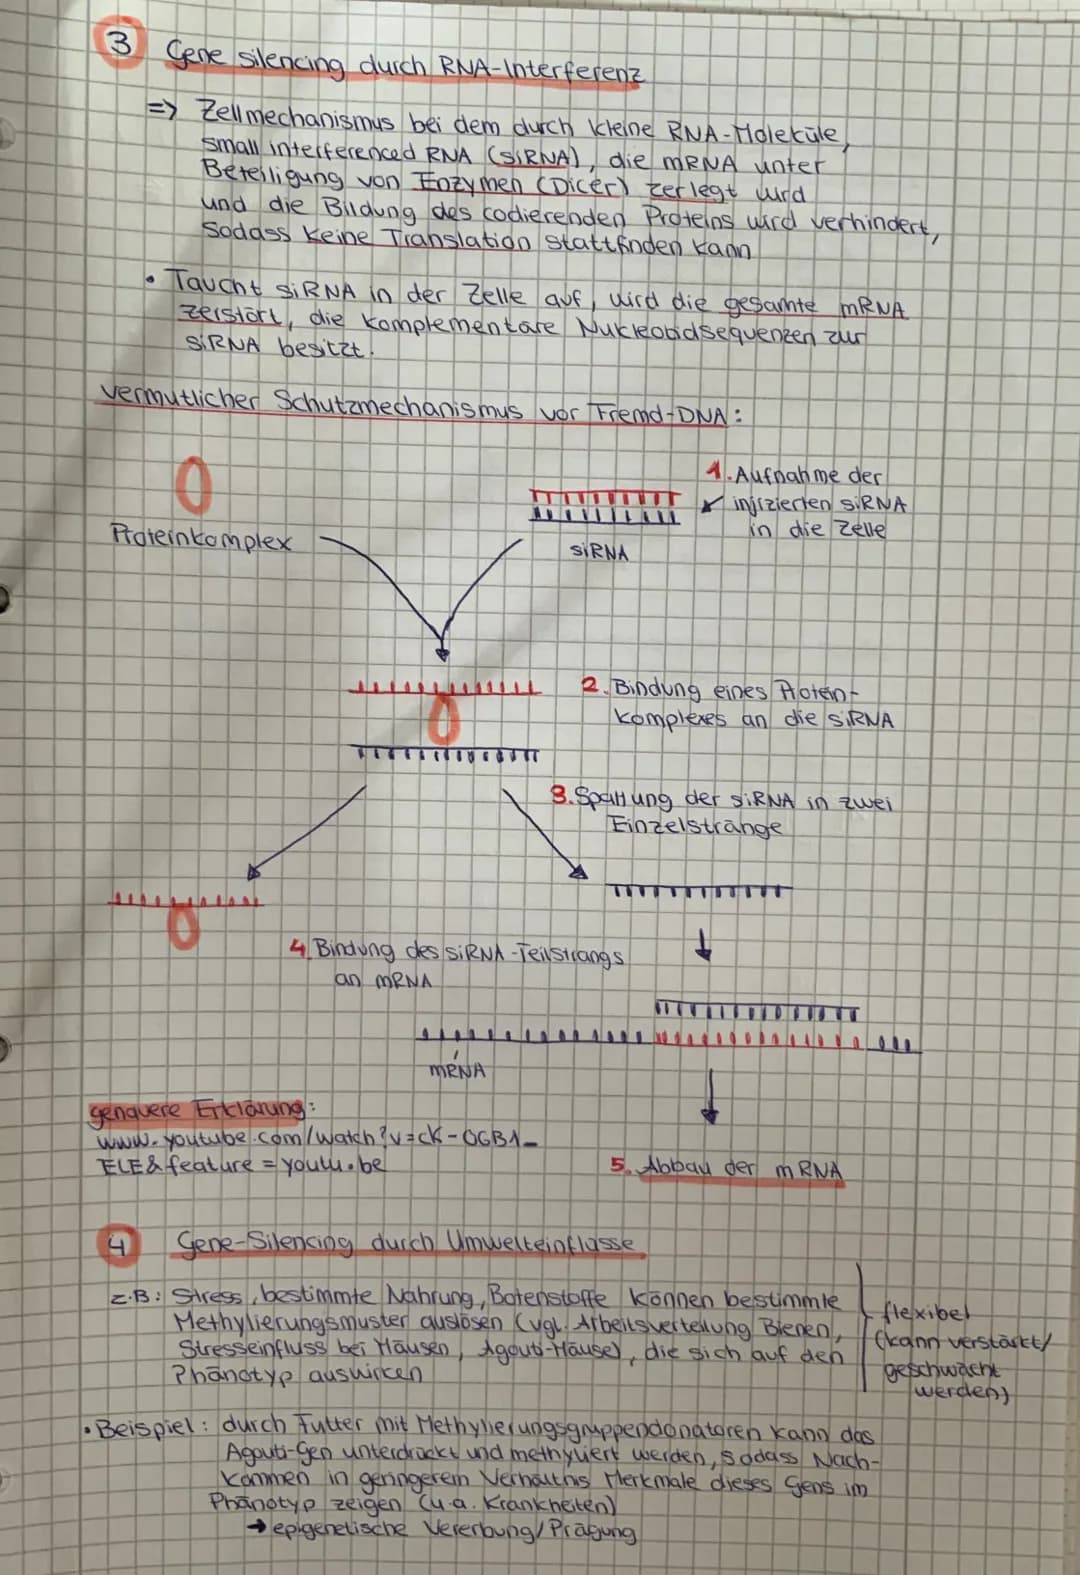 3 Gene silencing durch RNA-Interferenz
=> Zellmechanismus bei dem durch kleine RNA-Moleküle,
small interferenced RNA (siRNA), die mRNA unter
Beteiligung von Enzymen (Dicer) zerlegt wird
und die Bildung des codierenden Proteins wird verhindert,
sodass keine Translation stattfinden kann
• Taucht siRNA in der Zelle auf, wird die gesamte mRNA
zerstört, die komplementäre Nukleotidsequenzen zur
siRNA besitzt.
vermutlicher Schutzmechanismus vor Fremd-DNA:
1. Aufnahme der
injizierten siRNA
in die Zelle
Proteinkomplex
siRNA
2. Bindung eines Protein-
komplexes an die siRNA
3. Spaltung der siRNA in zwei
Einzelstränge
4. Bindung des siRNA-Teilstrangs
an mRNA
mRNA
genauere Erklärung:
www.youtube.com/watch?v=cK-OGB1_
ELE&feature=youtu.be
5. Abbau der mRNA
4 Gene-Silencing durch Umwelteinflüsse
z.B: Stress, bestimmte Nahrung, Botenstoffe können bestimmte
Methylierungsmuster auslösen (vgl. Arbeitsverteilung Bienen,
Stresseinfluss bei Mäusen, Agouti-Mäuse), die sich auf den
Phänotyp auswirken
flexibel
(kann verstärkt/
geschwächt
werden)
• Beispiel: durch Futter mit Methylierungsgruppendonatoren kann das
Agouti-Gen unterdrückt und methyliert werden, sodass Nach-
kommen in geringerem Verhältnis Merkmale dieses Gens im
Phänotyp zeigen (u.a. Krankheiten)
→ epigenetische Vererbung/Prägung